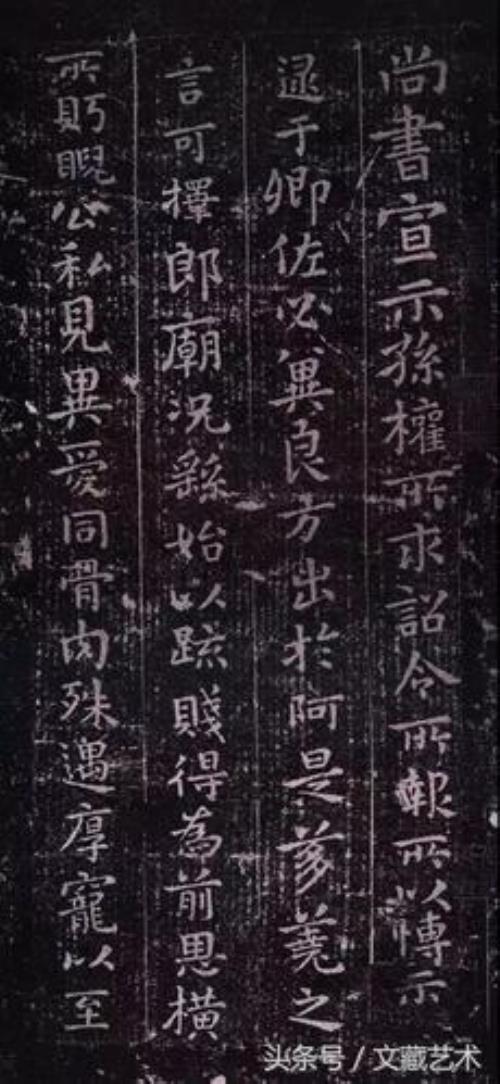 尚書宣示孫權所求詔令所報所以博示
逮于卿佐必冀良方出於阿是芻蕘之
言可擇郎廟況繇始以疏賤得為前恩橫
所眄睨公私見異愛同骨肉殊遇厚寵以至
头条号 / 文藏艺术